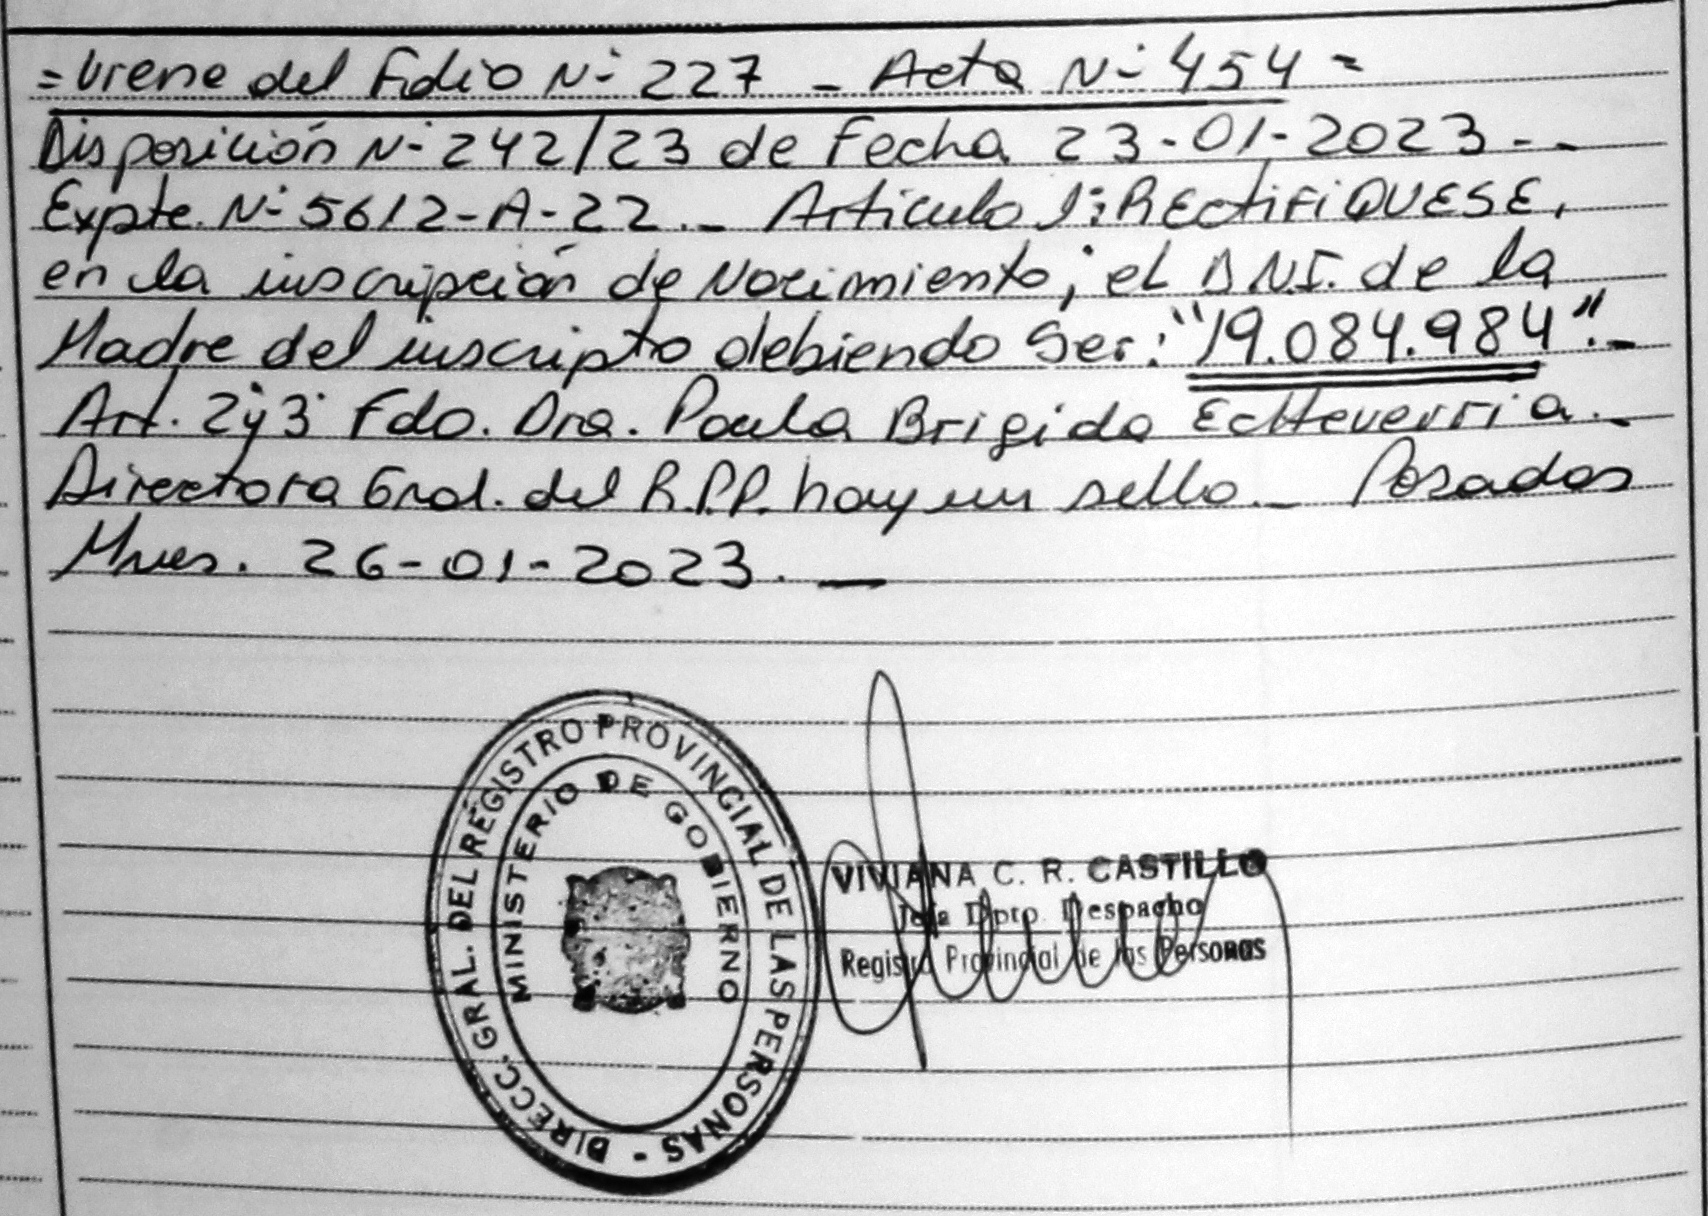 =Viene del Folio N° 227 - Acta N° 454=
Disposición N° 242/23 de Fecha 23-01-2023--
Expte. N° 5612-A-22.- Articulo 1°: RECtiFiQUESE,
en la inscripción de Nacimiento; el D.N.I. de la
Madre del inscripto debiendo Ser: "19.084.984".-
Art. 2y3 Fdo. Dra. Paula Brigida EcHeverria.-
Directora Gral. del R.P.P. hay un sello.- Posadas
Mnes. 26-01-2023.—
DIRECC. GRAL. DEL REGISTRO PROVINCIAL DE LAS PERSONAS -
MINISTERIO DE GOBIERNO
VIVIANA C. R. CASTILLO
Jefa Dpto. Despacho
Registro Provincial de las Personas